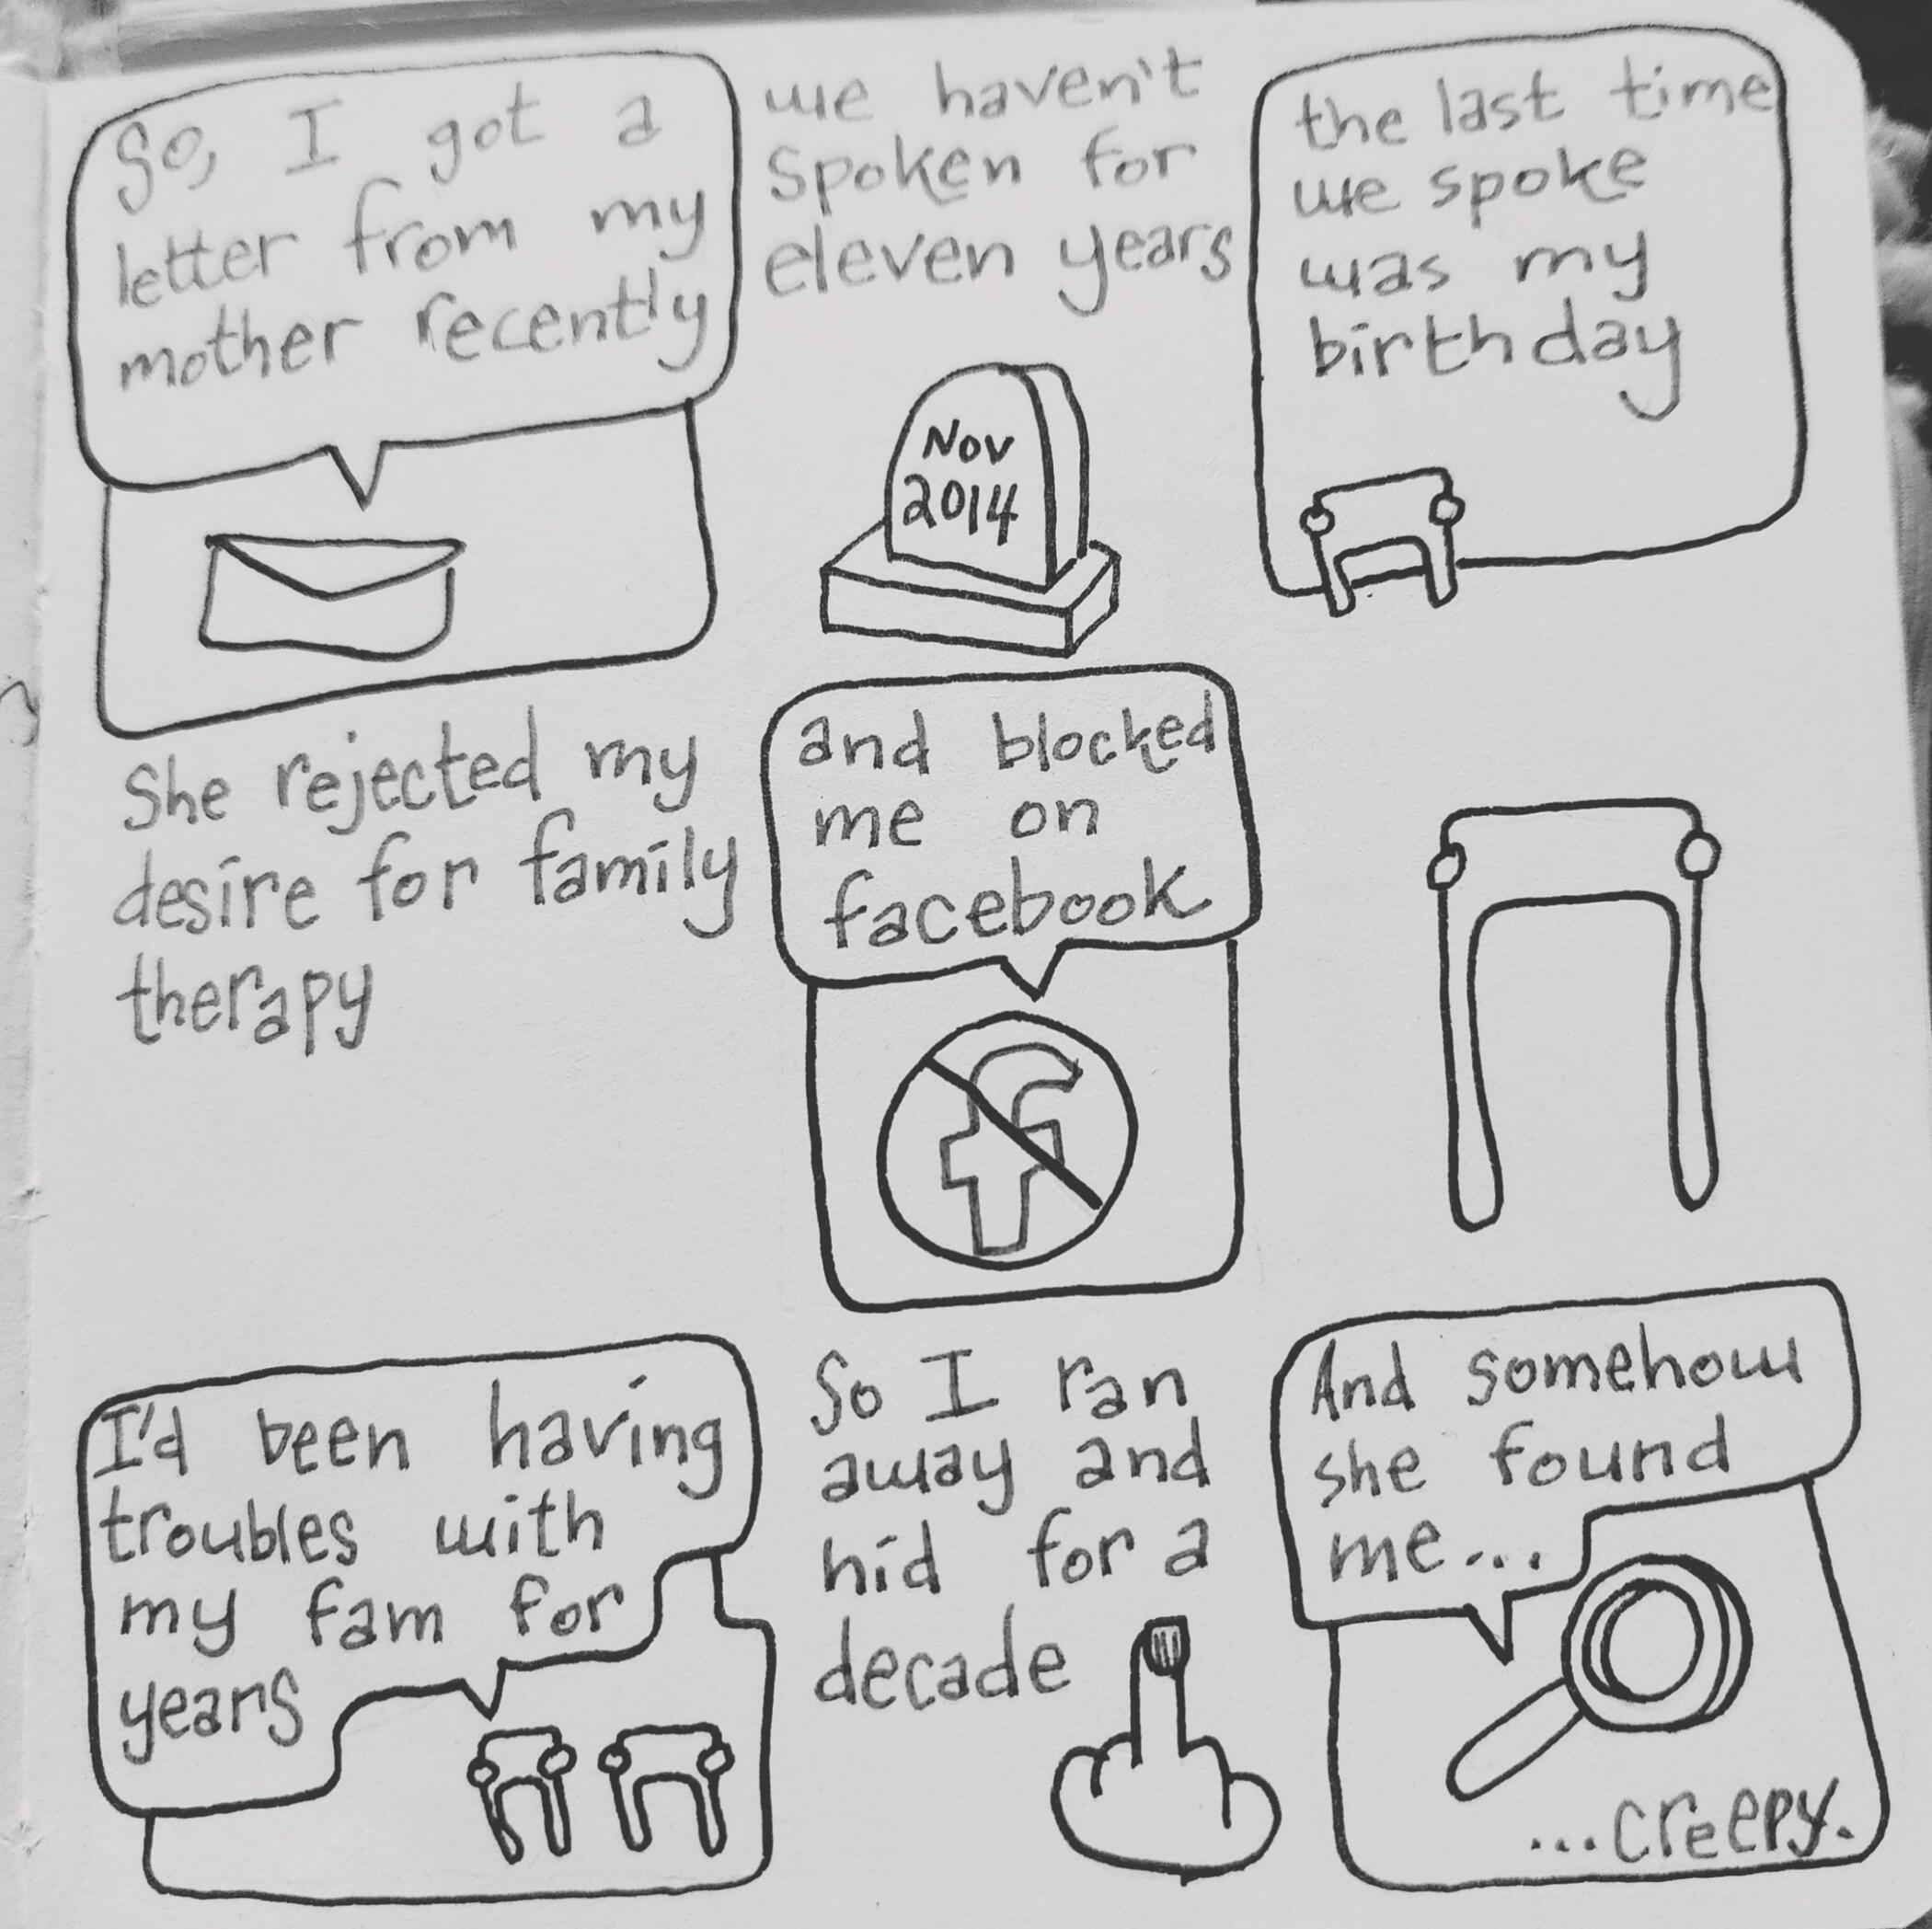 So, I got a
letter from my
mother recently
we haven't
spoken for
eleven years
Nov
2014
the last time
we spoke
was my
birthday
She rejected my
desire for family
therapy
and blocked
me on
facebook
f
I'd been having
troubles with
my fam for
years
So I ran
away and
hid for a
decade
And somehow
she found
me...
...creepy.